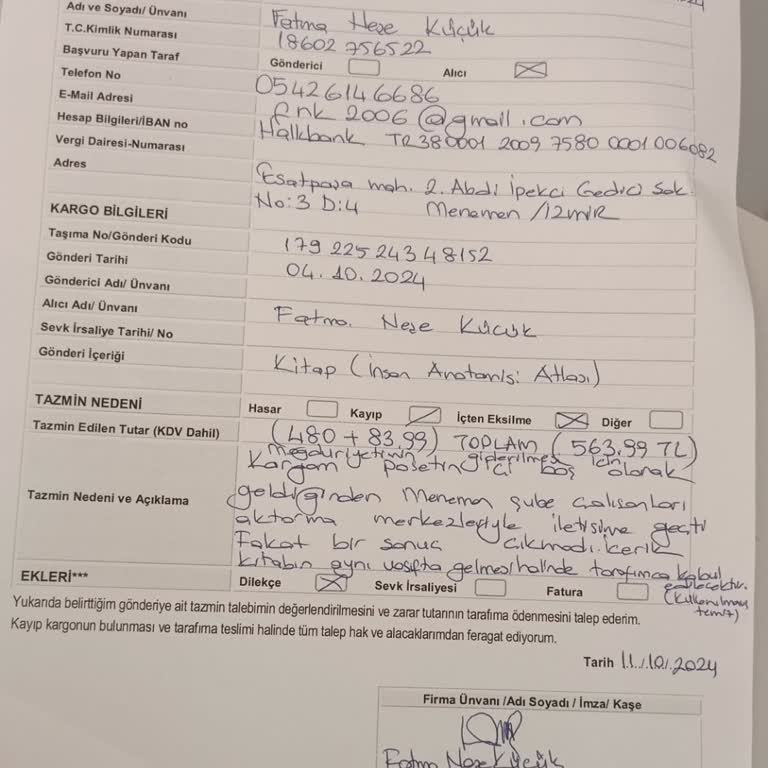 Adı ve Soyadı/ Ünvanı Fatma Neşe Küçük
T.C.Kimlik Numarası 18602756522
Başvuru Yapan Taraf Gönderici Alıcı
Telefon No 05426146686
E-Mail Adresi fnk2006@gmail.com
Hesap Bilgileri/IBAN no Halkbank TR380001 2009 7580 0001 006082
Vergi Dairesi-Numarası
Adres Esatpaşa mah. 2. Abdi İpekci Gedici Sok.
No:3 D:4 Menemen /İZMİR
KARGO BİLGİLERİ
Taşıma No/Gönderi Kodu 179 225 24348152
Gönderi Tarihi 04.10.2024
Gönderici Adı/ Ünvanı
Alıcı Adı/ Ünvanı Fatma Neşe Kücük
Sevk İrsaliye Tarihi/ No
Gönderi İçeriği Kitap (İnsan Anatomisi Atlası)
TAZMİN NEDENİ Hasar Kayıp İçten Eksilme Diğer
Tazmin Edilen Tutar (KDV Dahil) (480 + 83,99) TOPLAM (563,99 TL)
mağduriyetimin giderilmesi için
Tazmin Nedeni ve Açıklama Kargom poşetin içi boş olarak
geldiğinden Menemen şube çalışanları
aktarma merkezleriyle iletişime geçti
Fakat bir sonuç çıkmadı. İçerik
kitabın aynı vasıfta gelmesi halinde tarafımca kabul
edilecektir.
(Kullanılmamış
temiz)
EKLERİ*** Dilekçe Sevk İrsaliyesi Fatura
Yukarıda belirttiğim gönderiye ait tazmin talebimin değerlendirilmesini ve zarar tutarının tarafıma ödenmesini talep ederim.
Kayıp kargonun bulunması ve tarafıma teslimi halinde tüm talep hak ve alacaklarımdan feragat ediyorum.
Tarih 11./10/.2024
Firma Ünvanı /Adı Soyadı / İmza/ Kaşe
Fatma Neşe Küçük